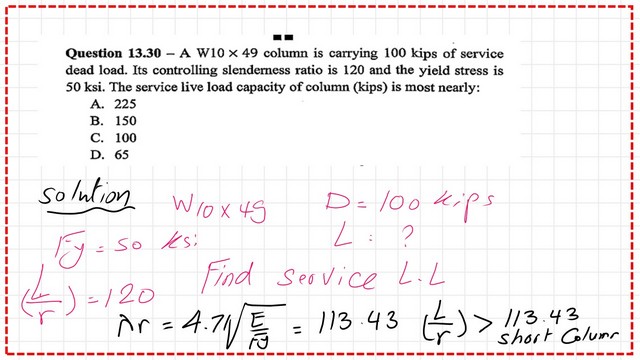 Question 13.30 – A W10 × 49 column is carrying 100 kips of service
dead load. Its controlling slenderness ratio is 120 and the yield stress is
50 ksi. The service live load capacity of column (kips) is most nearly:
A. 225
B. 150
C. 100
D. 65
solution
W10 x 49
D = 100 kips
Fy = 50 ksi
L = ?
(L/r) = 120
Find service L.L
λr = 4.71√E/Fy = 113.43 (L/r) > 113.43
short Column